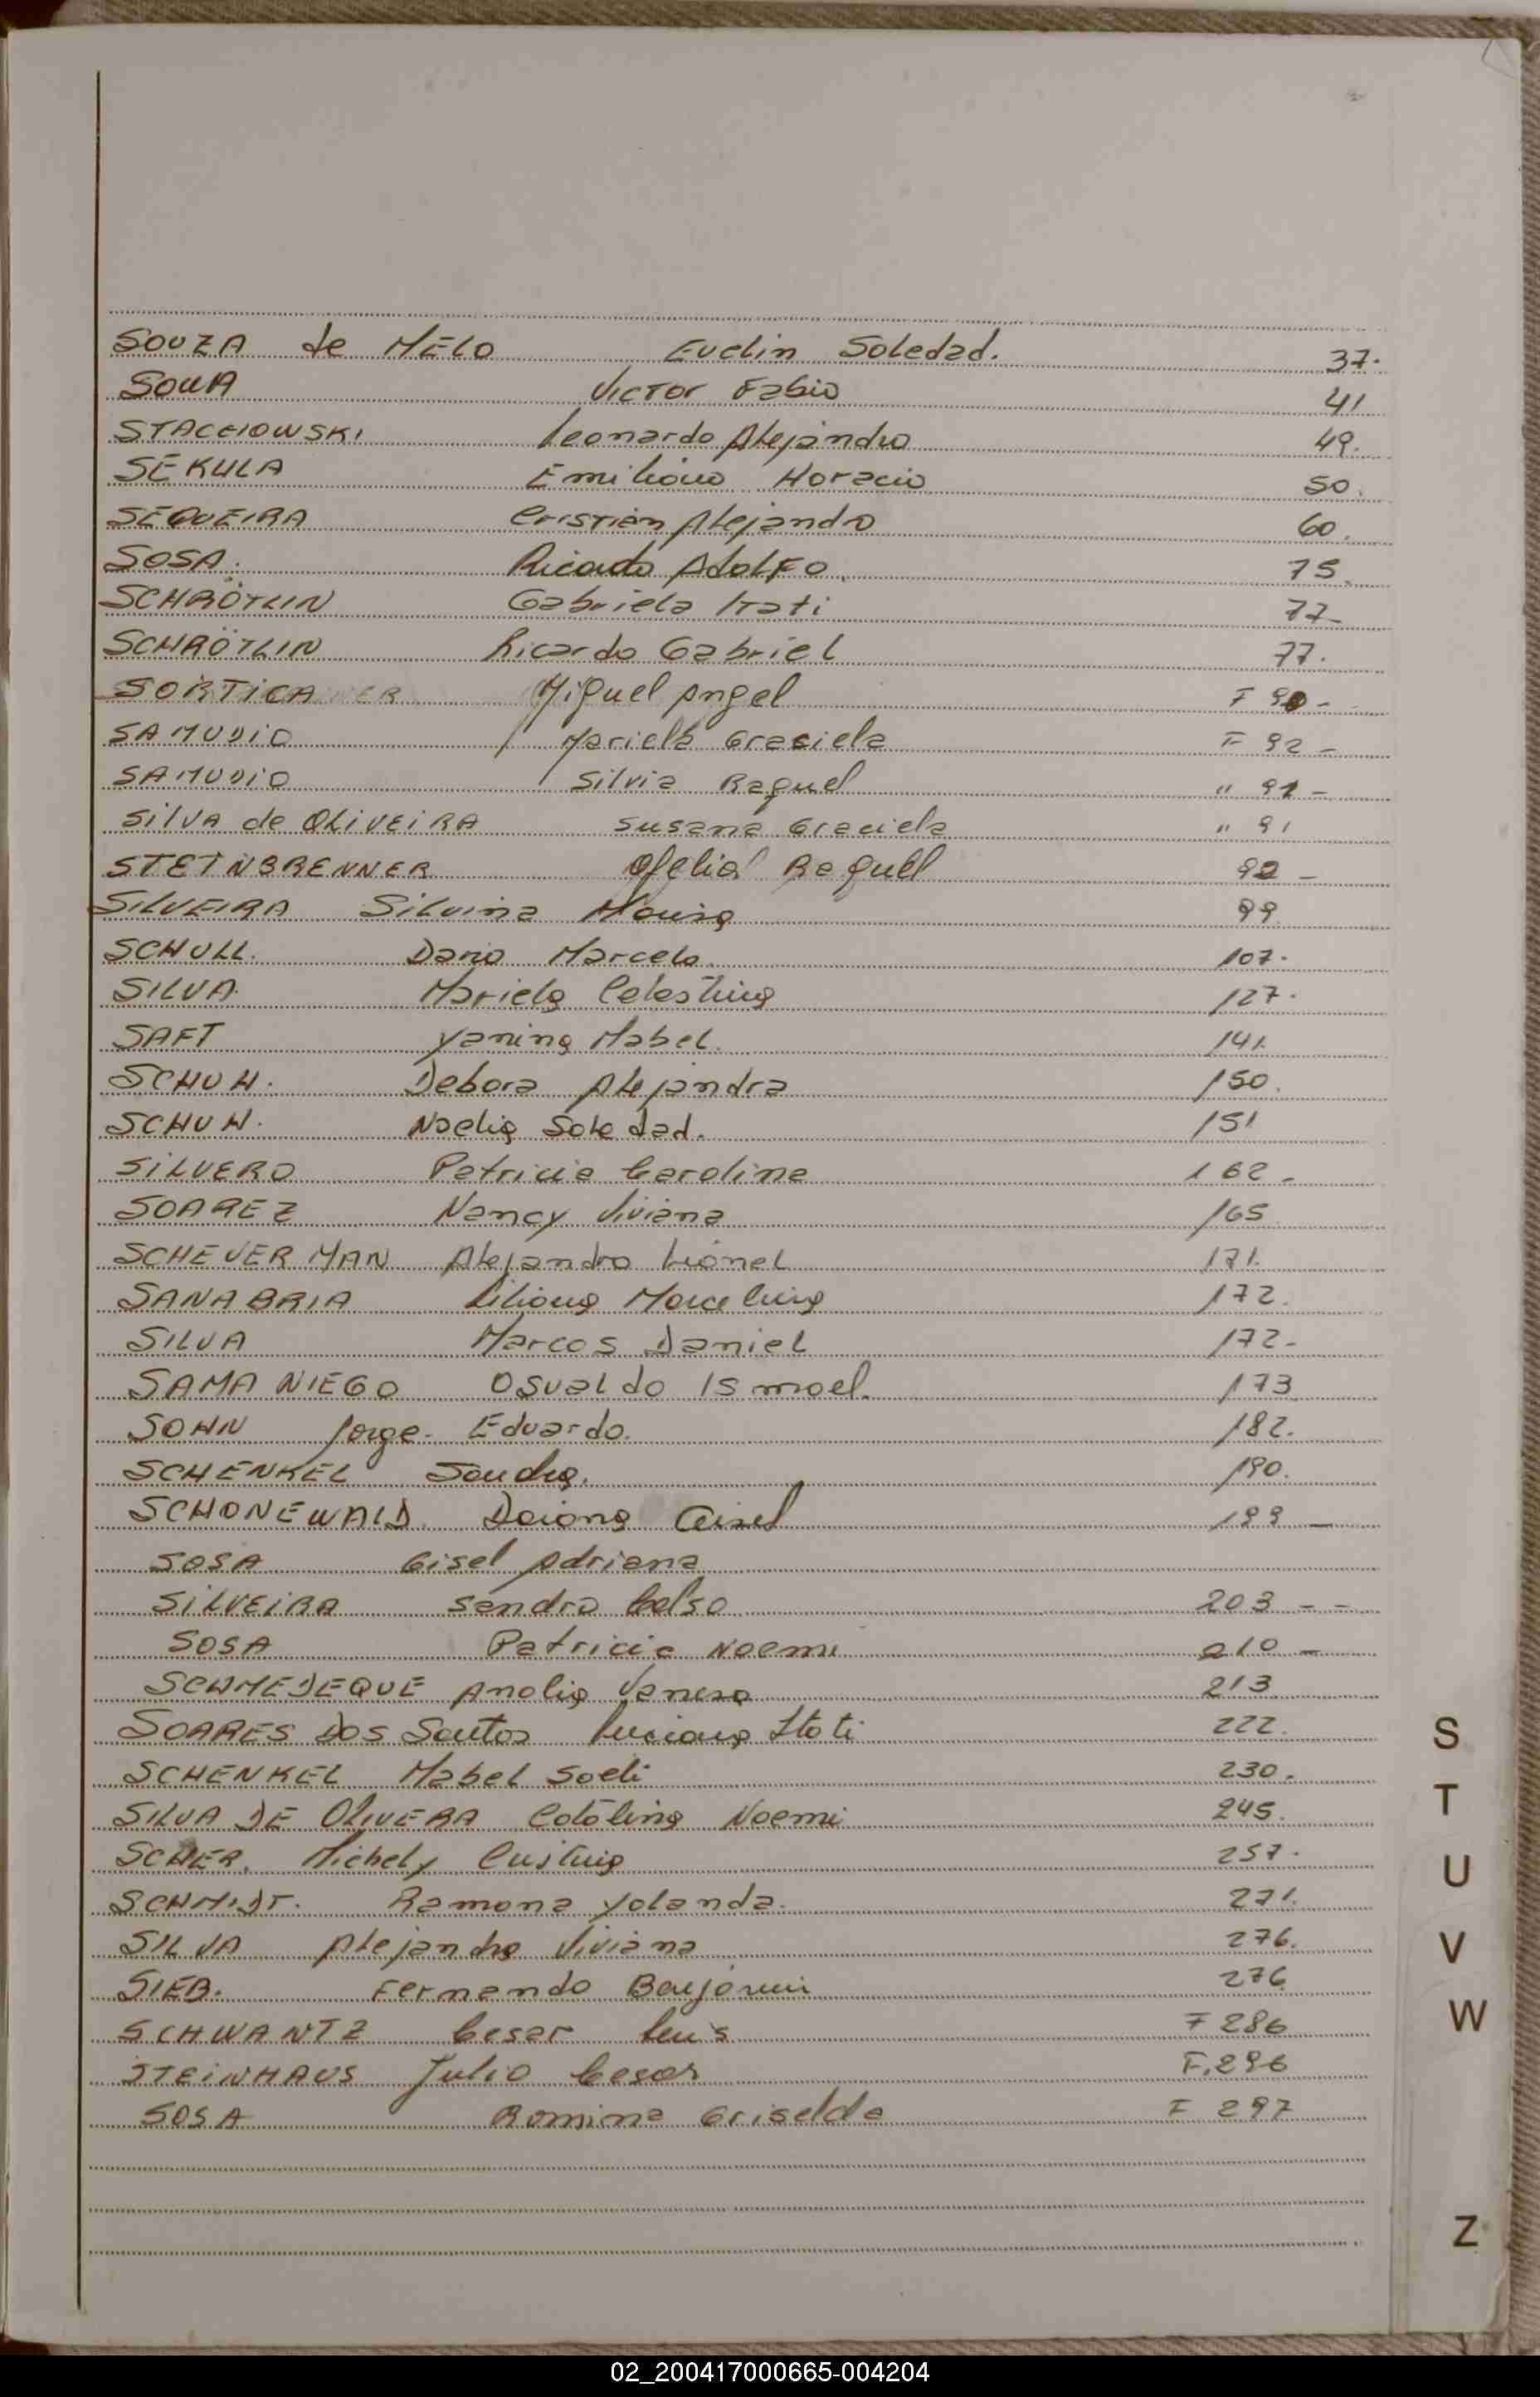 SOUZA de MELO Evelin Soledad. 37.
SOUZA Victor Fabio 41
STACCIOWSKI Leonardo Alejandro 49.
SEKULA Emiliano Horacio 50.
SEQUEIRA Cristian Alejandro 60.
SOSA. Ricardo Adolfo. 75.
SCHRÖTLIN Gabriela Itati 77-
SCHRÖTLIN Ricardo Gabriel 77.
SORTICA Miguel Angel F 90 -
SAMUDIO Mariela Graciela F 92 -
SAMUDIO Silvia Raquel " 91 -
SILVA de OLIVEIRA Susana Graciela " 91
STEINBRENNER Ofelia Raquel 92 -
SILVEIRA Silvina Maria 99
SCHULL. Dario Marcelo. 107.
SILVA Mariela Celestina 127.
SAFT Yanina Mabel. 141.
SCHUH. Debora Alejandra 150.
SCHUH. Noelia Soledad. 151
SILVERO Patricia Carolina 162 -
SOAREZ Nancy Viviana 165
SCHEVERMAN Alejandro Lionel 171.
SANABRIA Liliana Marcelina 172.
SILVA Marcos Daniel 172-
SAMANIEGO Osvaldo Ismael. 173
SOHN Jorge. Eduardo. 182.
SCHENKEL Sandra. 190.
SCHONEWALD. Daiana Gisel 199 -
SOSA Gisel Adriana
SILVEIRA Sandro Celso 203 - -
SOSA Patricia Noemi 210 -
SCHMEDEQUE Analia Vanesa 213
SOARES DOS Santos Luciana Itati 222.
SCHENKEL Mabel Soeli 230.
SILVA DE OLIVERA Catalina Noemi 245.
SCHER. Michely Cristina 257.
SCHMIDT. Ramona Yolanda. 271.
SILVA Alejandra Viviana 276.
SIEB. Fernando Benjamin 276
SCHWANTZ Cesar Luis F 286
STEINHAUS Julio Cesar F. 296
SOSA Romina Griselda F 297
S
T
U
V
W
Z
02_200417000665-004204